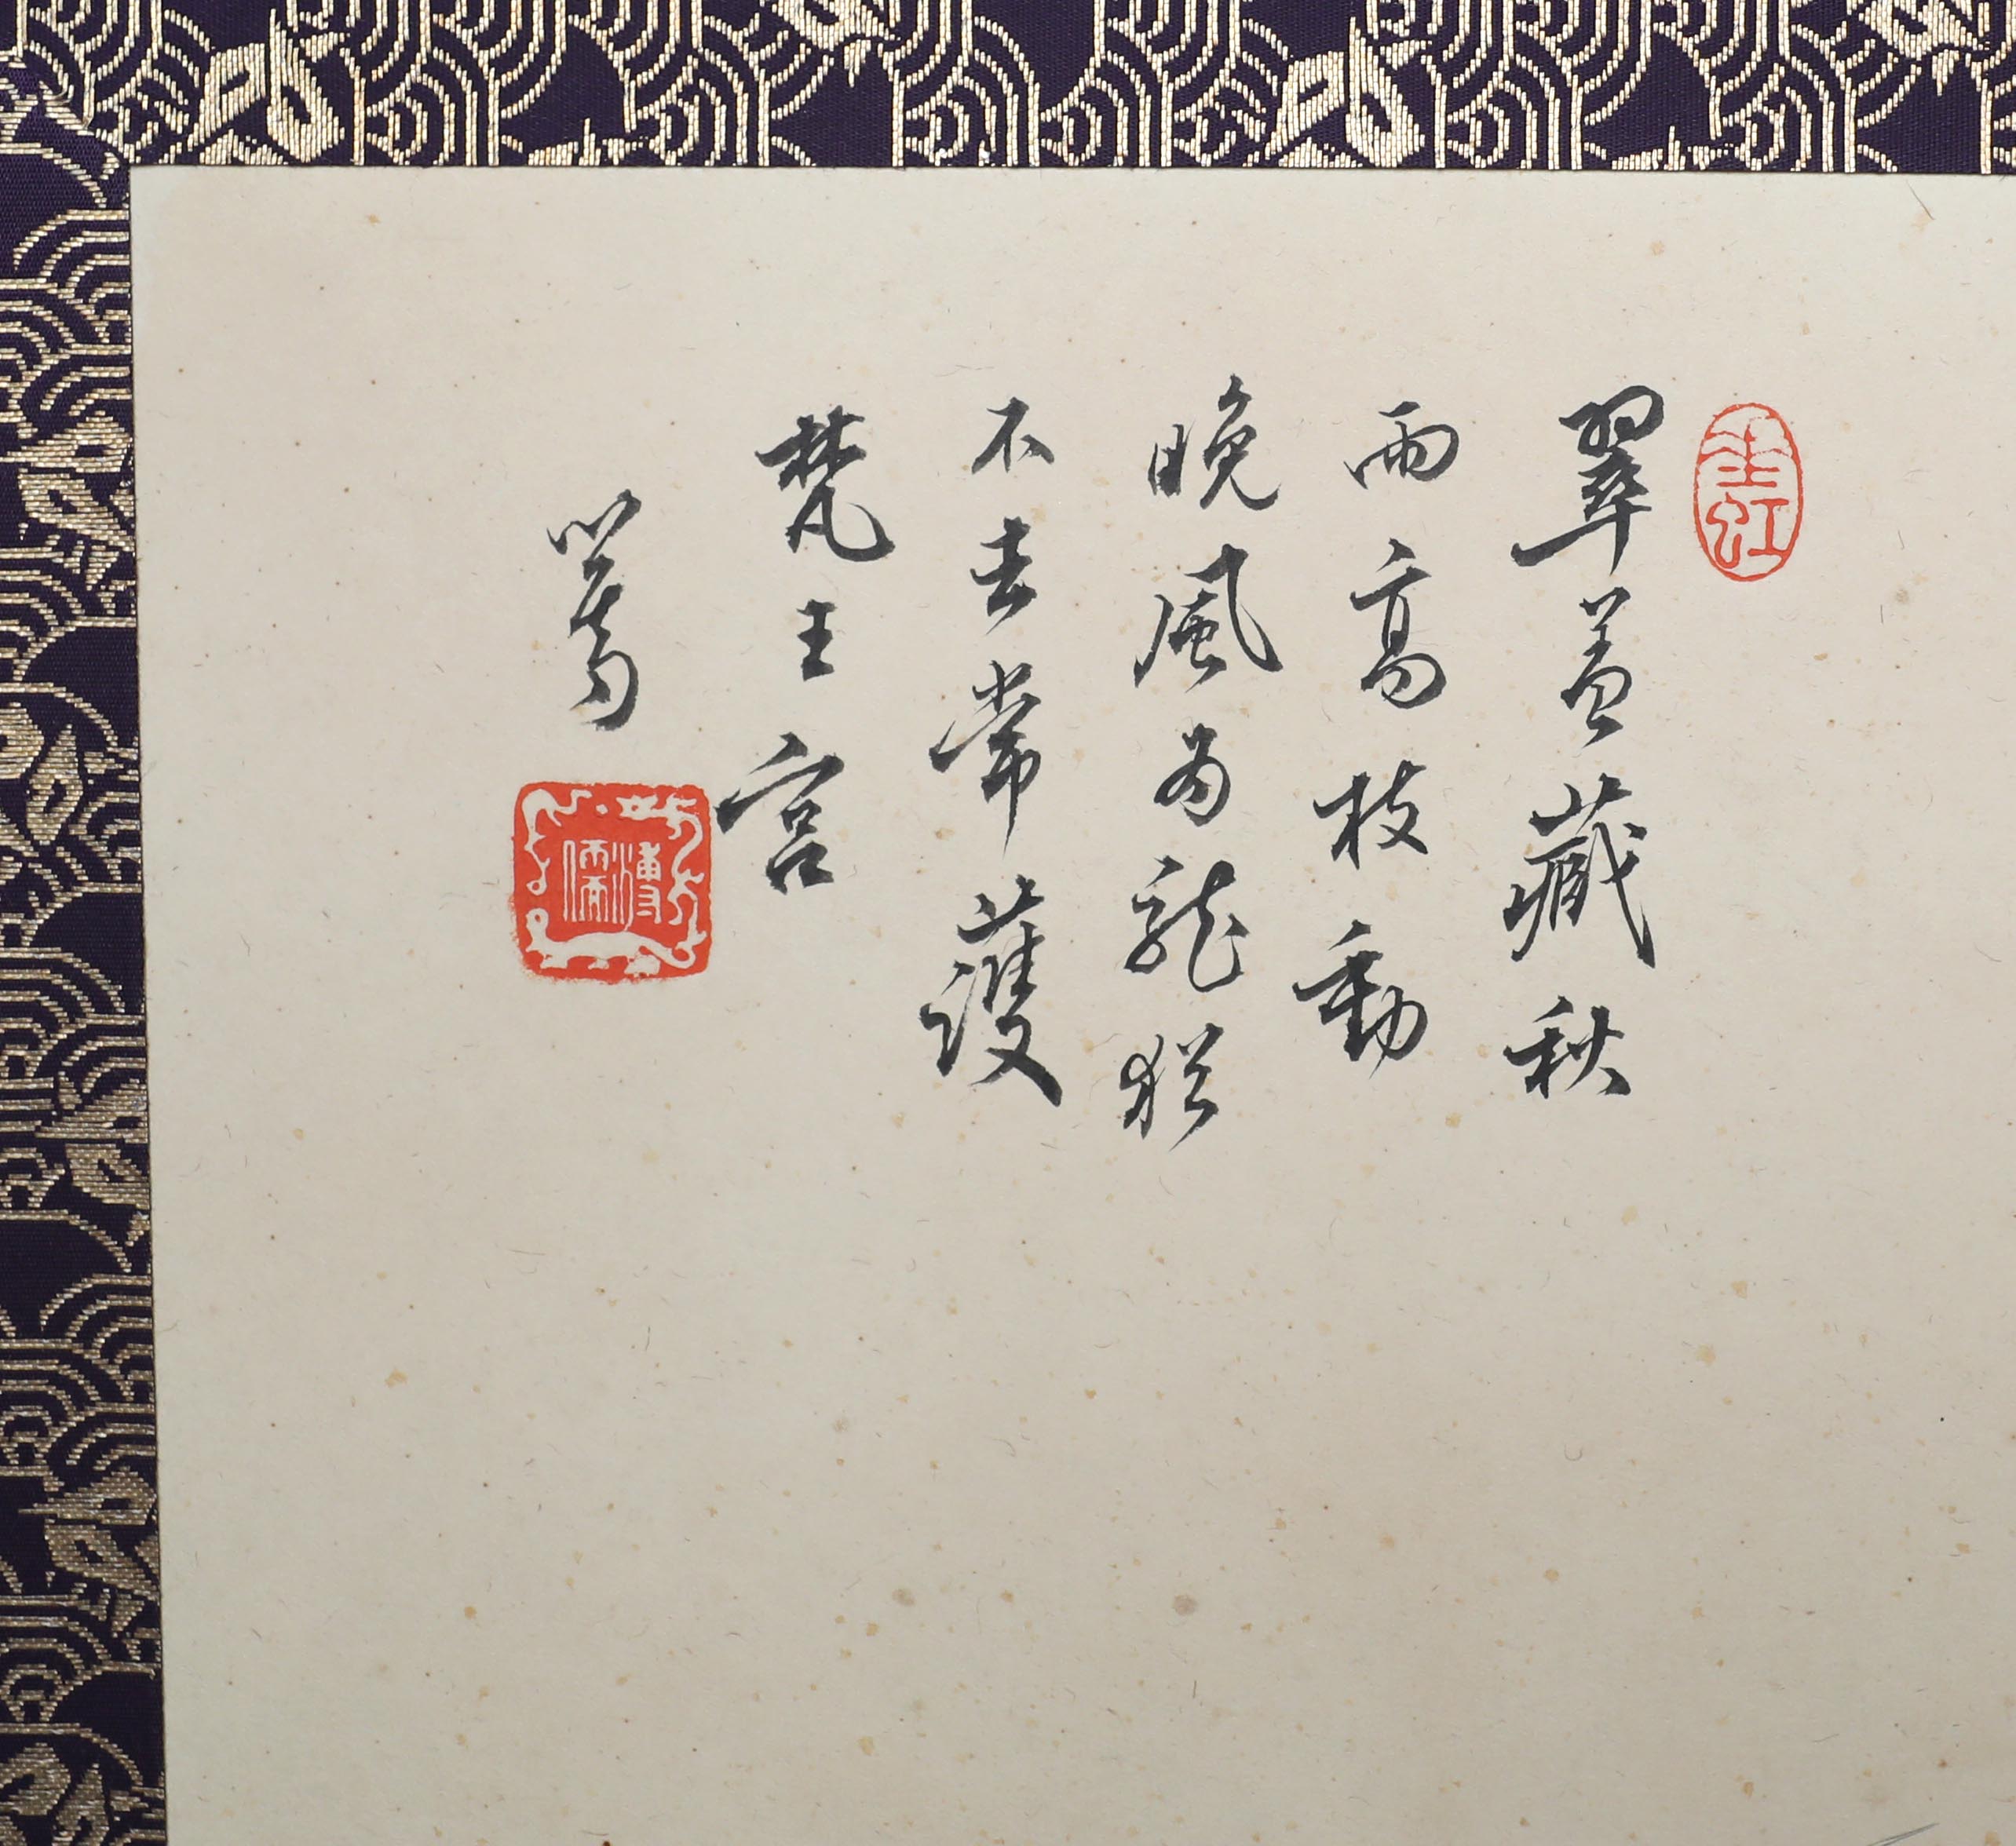 翠蓋藏秋
雨高枝動
晚風為龍猶
不去常護
梵王宮
心畬
溥儒